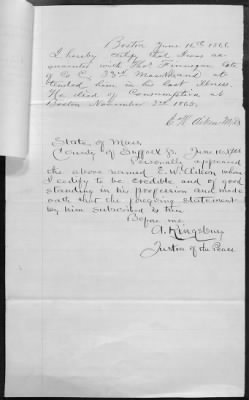 Boston June 16th 1866
I hereby certify that I was ac-
quainted with Thos Finnegan late
of Co C, 33d Mass and at-
tended him in his last illness.
He died of Consumption at
Boston November 3d 1865.
State of Mass
County of Suffolk Ss. June 16, 1866
Personally appeared
the above named E. W. Aiken whom
I certify to be credible and of good
standing in his profession and made
oath that the foregoing statement
by him subscribed is true
Before me,
A. Kingsbury
Justice of the Peace